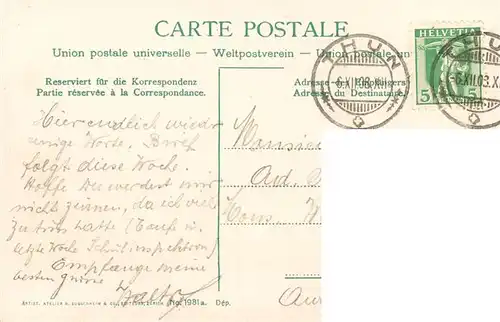 CARTE POSTALE
Union postale universelle – Weltpostverein – Union postale
Reserviert für die Korrespondenz
Partie réservée à la Correspondance.
Adresse des
Adresse du Destinataire
THUN
-6.XII.08.XI
HELVETIA
5
5
THUN
-6.XII.08.X
Hier endlich wieder
einige Worte. Brief
folgt diese Woche.
Hoffe Du werdest mir
nicht zürnen, da ich viel
zu tun hatte (Taufe u.
letzte Woche Schulinspektion)
Empfange meine
besten Grüsse
Walter
Monsieur
Aud.
Cons.
No. 1981a. Dép.